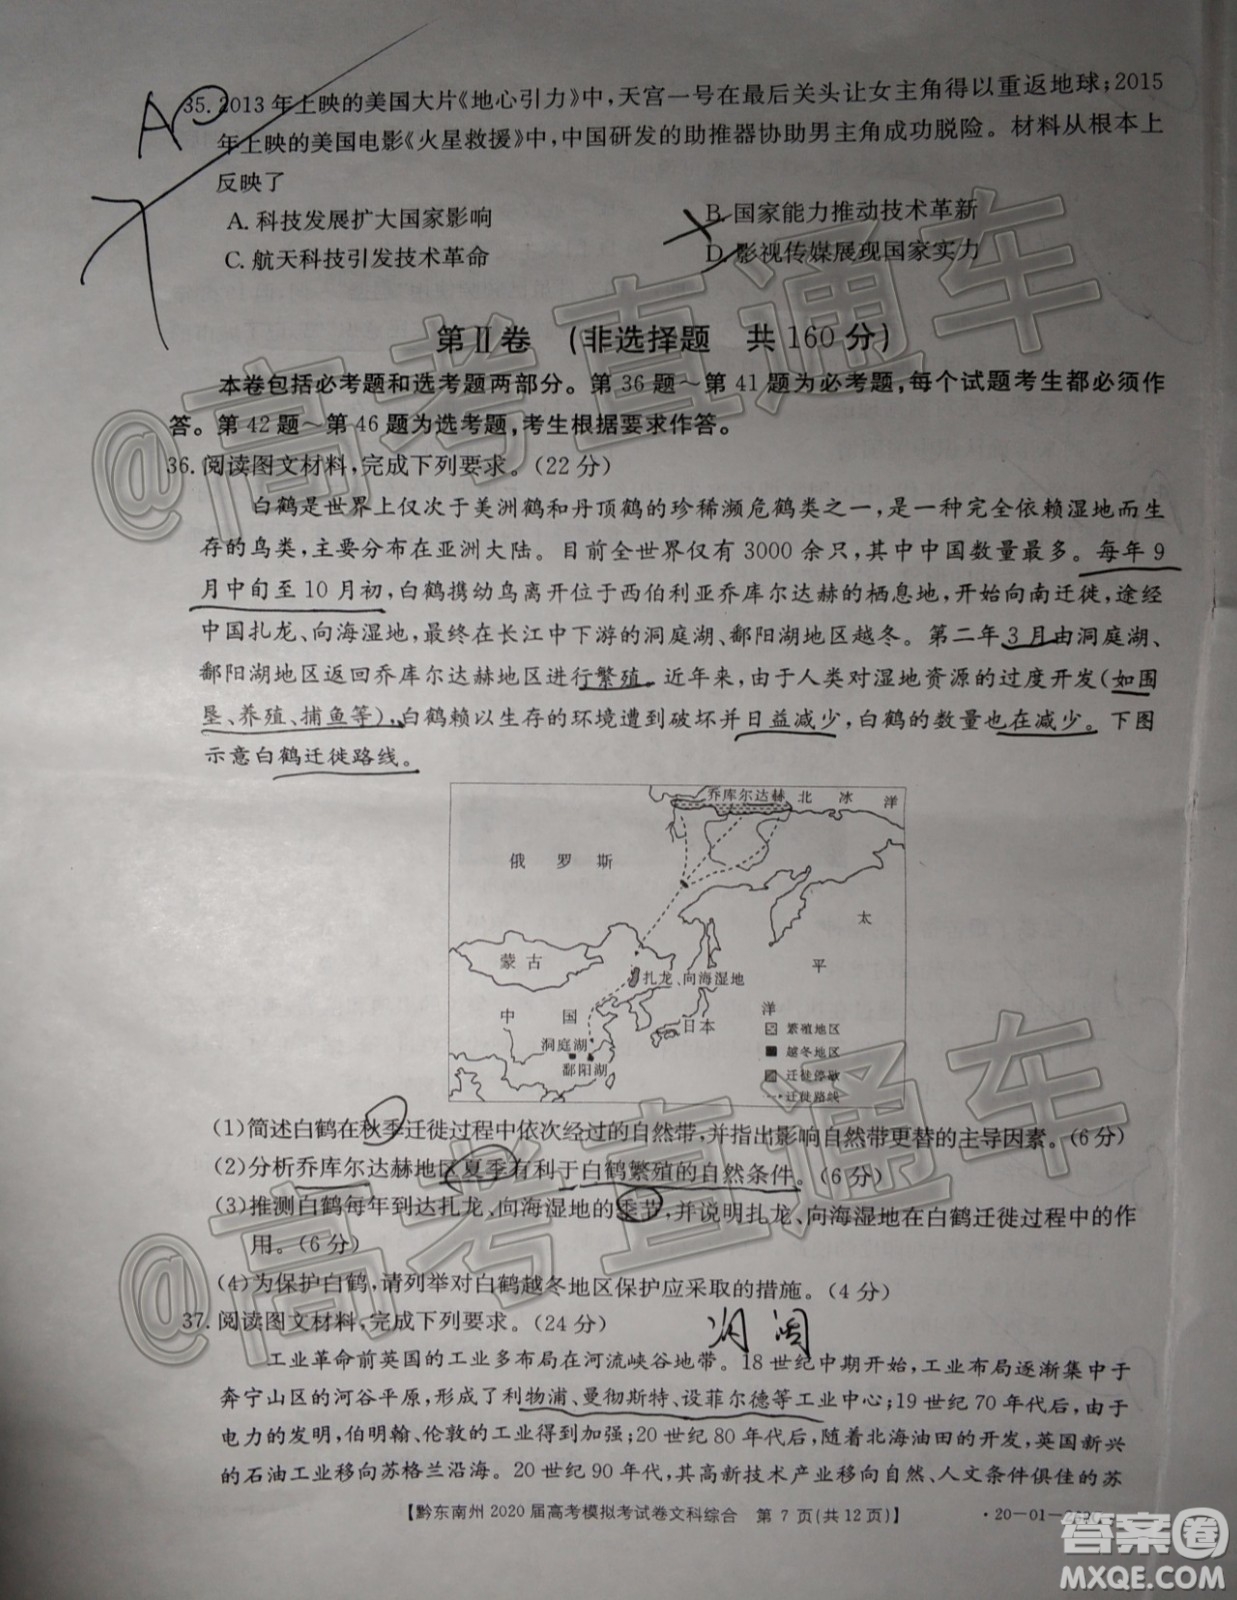 A
35. 2013年上映的美国大片《地心引力》中，天宫一号在最后关头让女主角得以重返地球；2015
年上映的美国电影《火星救援》中，中国研发的助推器协助男主角成功脱险。材料从根本上
反映了
A. 科技发展扩大国家影响
B. 国家能力推动技术革新
C. 航天科技引发技术革命
D. 影视传媒展现国家实力
第Ⅱ卷 （非选择题 共160分）
本卷包括必考题和选考题两部分。第36题～第41题为必考题，每个试题考生都必须作
答。第42题～第46题为选考题，考生根据要求作答。
36. 阅读图文材料，完成下列要求。（22分）
白鹤是世界上仅次于美洲鹤和丹顶鹤的珍稀濒危鹤类之一，是一种完全依赖湿地而生
存的鸟类，主要分布在亚洲大陆。目前全世界仅有3000余只，其中中国数量最多。每年9
月中旬至10月初，白鹤携幼鸟离开位于西伯利亚乔库尔达赫的栖息地，开始向南迁徙，途经
中国扎龙、向海湿地，最终在长江中下游的洞庭湖、鄱阳湖地区越冬。第二年3月由洞庭湖、
鄱阳湖地区返回乔库尔达赫地区进行繁殖。近年来，由于人类对湿地资源的过度开发（如围
垦、养殖、捕鱼等），白鹤赖以生存的环境遭到破坏并日益减少，白鹤的数量也在减少。下图
示意白鹤迁徙路线。
乔库尔达赫 北 冰 洋
俄 罗 斯
太
平
洋
蒙 古
扎龙、向海湿地
中 国
日本
洞庭湖
鄱阳湖
繁殖地区
越冬地区
迁徙停歇
迁徙路线
（1）简述白鹤在秋季迁徙过程中依次经过的自然带，并指出影响自然带更替的主导因素。（6分）
（2）分析乔库尔达赫地区夏季有利于白鹤繁殖的自然条件。（6分）
（3）推测白鹤每年到达扎龙、向海湿地的季节，并说明扎龙、向海湿地在白鹤迁徙过程中的作
用。（6分）
（4）为保护白鹤，请列举对白鹤越冬地区保护应采取的措施。（4分）
37. 阅读图文材料，完成下列要求。（24分）
工业革命前英国的工业多布局在河流峡谷地带。18世纪中期开始，工业布局逐渐集中于
奔宁山区的河谷平原，形成了利物浦、曼彻斯特、设菲尔德等工业中心；19世纪70年代后，由于
电力的发明，伯明翰、伦敦的工业得到加强；20世纪80年代后，随着北海油田的开发，英国新兴
的石油工业移向苏格兰沿海。20世纪90年代，其高新技术产业移向自然、人文条件俱佳的苏
【黔东南州2020届高考模拟考试卷文科综合 第7页（共12页）】
·20-01-
@高考直通车
@高考直通车
答案圈
MXQE.COM